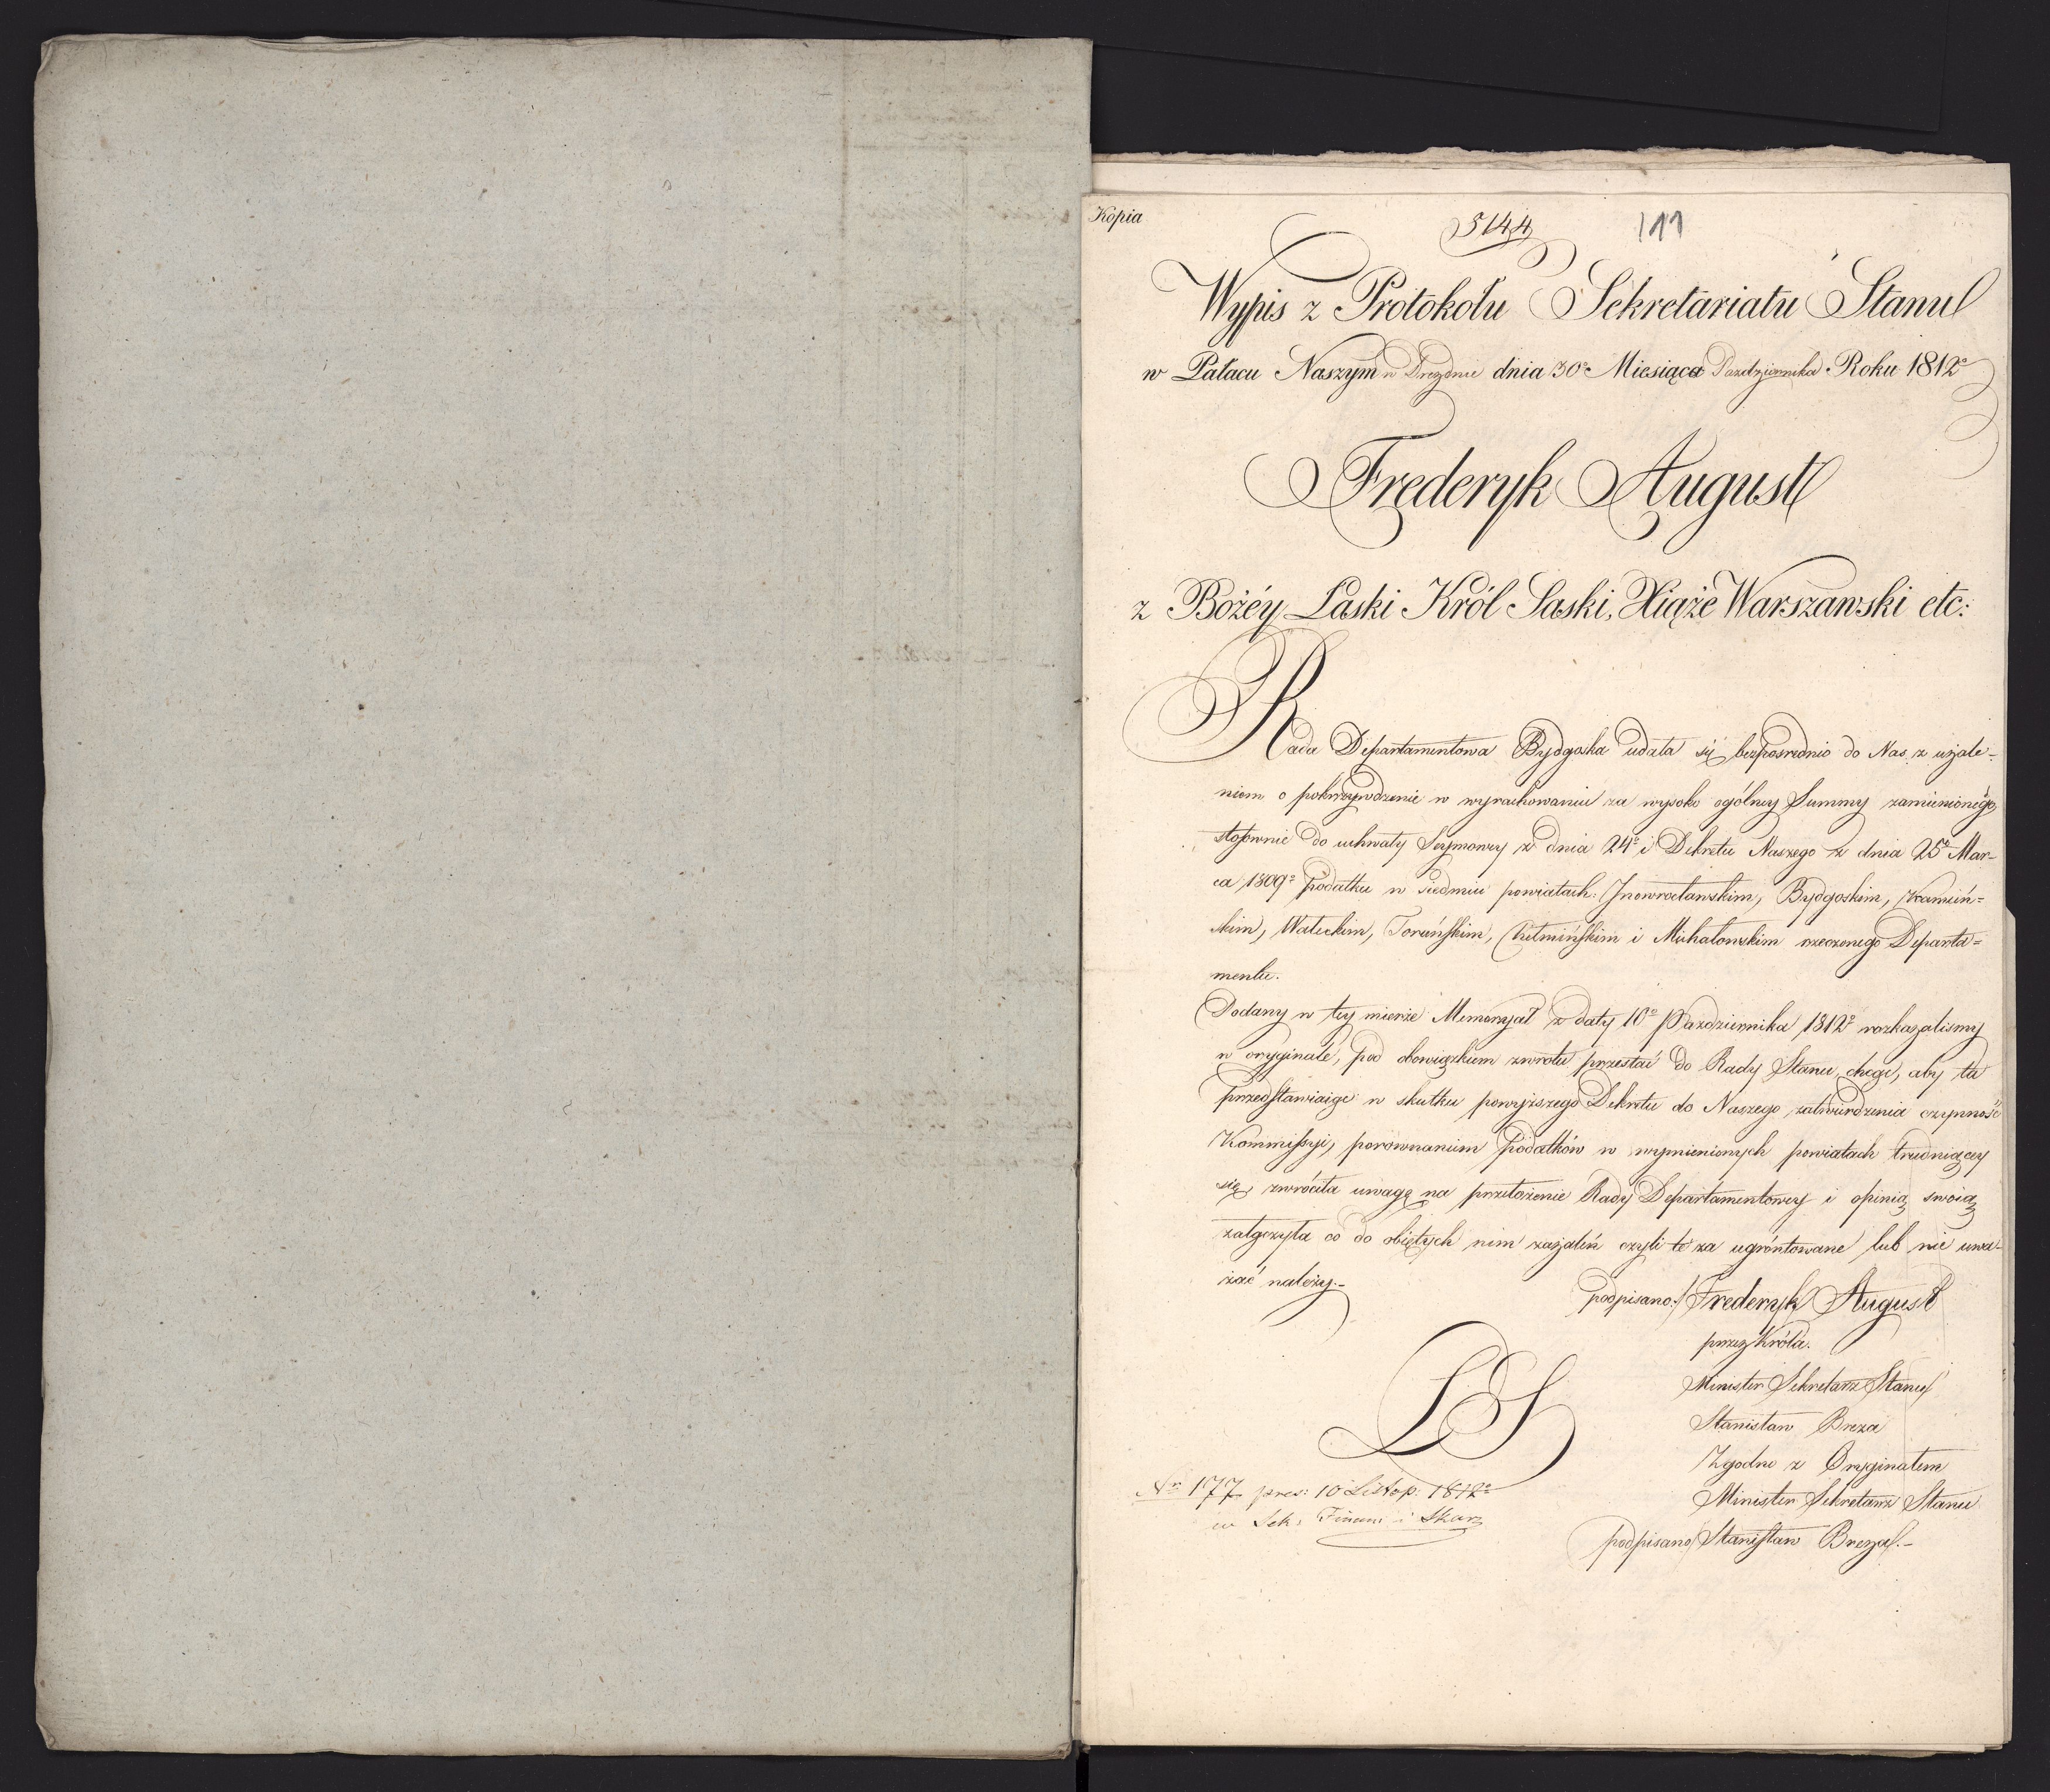 Kopia
5144
111
Wypis z Protokołu Sekretariatu Stanu
w Pałacu Naszym w Dreznie dnia 30º Miesiąca Pazdziernika Roku 1812º
Frederyk August
z Bożéy Łaski Król Saski, Xiąże Warszawski etc:
Rada Departamentowa Bydgoska udała się bezpośrednio do Nas z użale-
niem o pokrzywdzenie w wyrachowaniu za wysoko ogólney Summy zamienionégo
stosownie do uchwały Seymowey z dnia 24º i Dekretu Naszego z dnia 25º Mar-
ca 1809º podatku w siedmiu powiatach: Jnowrocławskim, Bydgoskim, Kamiń=
skim, Wałeckim, Toruńskim, Chełmińskim i Michałowskim rzeczonego Departa=
mentu.
Dodany w tey mierze Memoryał z daty 10º Pazdziernika 1812º rozkazaliśmy
w oryginale, pod obowiązkiem zwrotu przesłać do Rady Stanu, chcąc, aby ta
przedstawiaiąc w skutku powyższego Dekretu do Naszego zatwierdzenia czynność
Kommissyi, porównaniem podatków w wymienionych powiatach trudniącey
się, zwróciła uwagę na przełożenie Rady Departamentowey i opinią swoią
załączyła co do obiętych nim zażaleń czyli te za ugróntowane lub nie uwa-
żać należy.-
podpisano:/ Frederyk August
przez Króla.
Minister Sekretarz Stanu
Stanisław Breza
Zgodno z Oryginałem
Minister Sekretarz Stanu
podpisano/ Stanisław Breza.-
LS
Nº 177 pres: 10 Listop: 1812º
w Sek: Finan: i Skar: